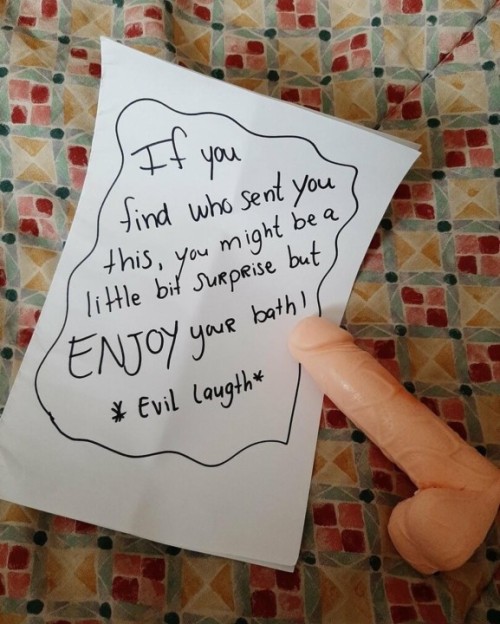 If you
find who sent you
this, you might be a
little bit surprise but
ENJOY your bath!
* Evil laugth*